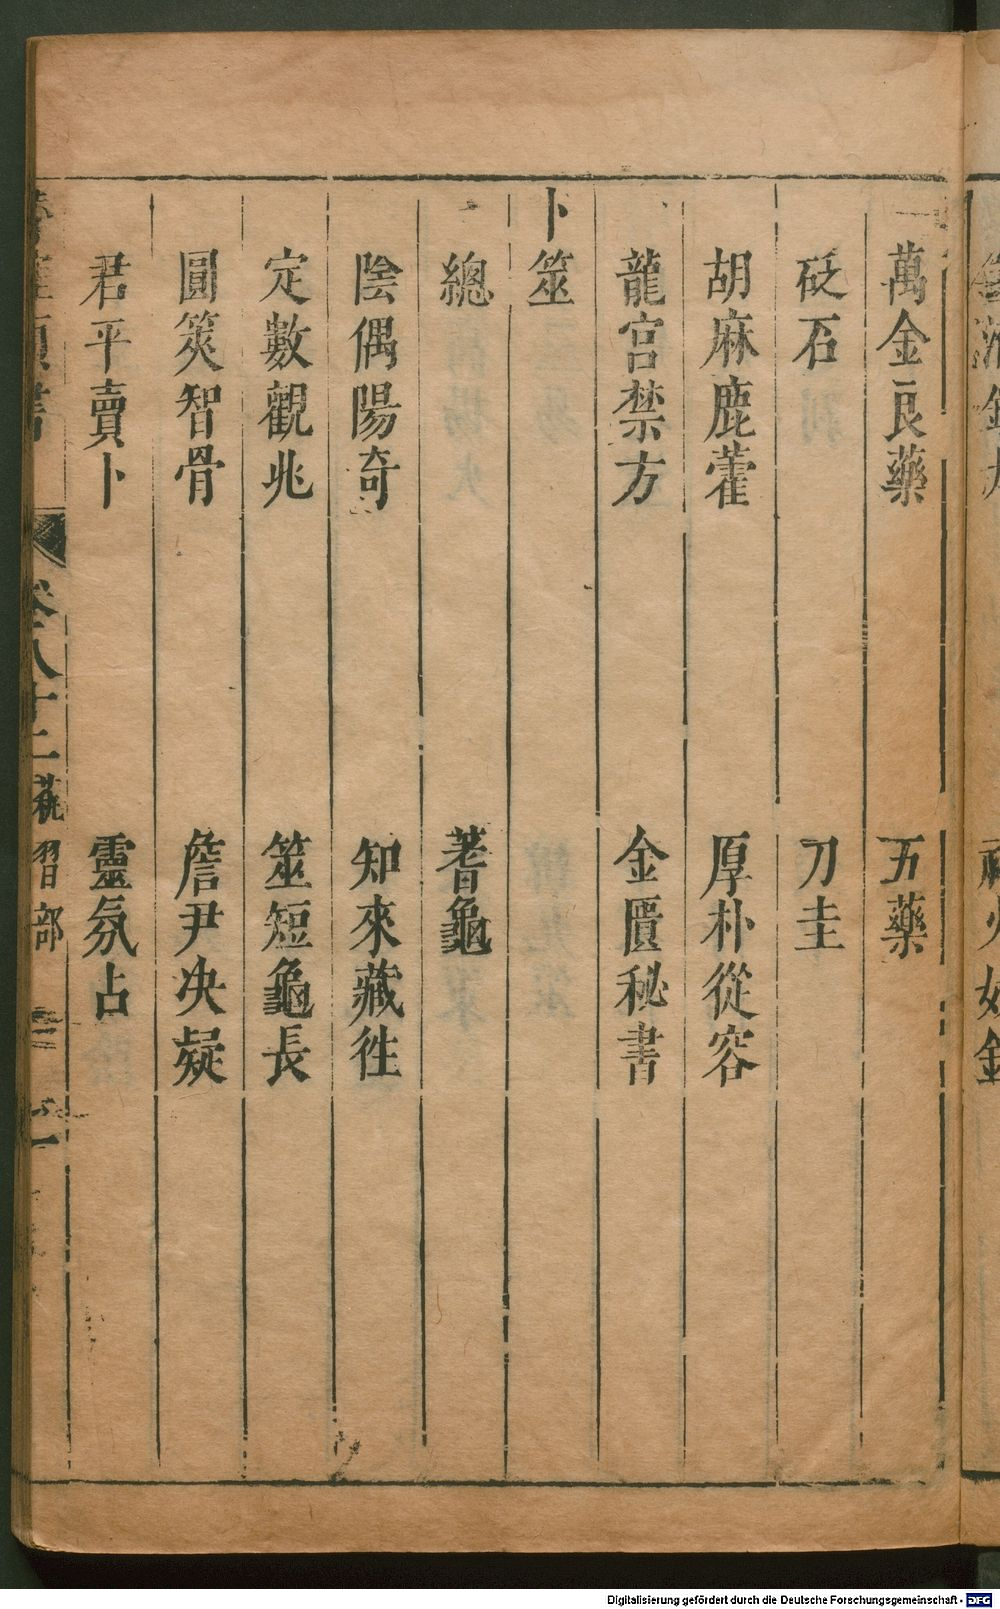 萬金良藥　五藥
砭石　刀圭
胡麻鹿藿　厚朴從容
龍宮禁方　金匱秘書
卜筮
總　蓍龜
陰偶陽奇　知來藏徃
定數觀兆　筮短龜長
圓筴智骨　詹尹决疑
君平賣卜　靈氛占
卷八十二 藝習部
Digitalisierung gefördert durch die Deutsche Forschungsgemeinschaft - DFG